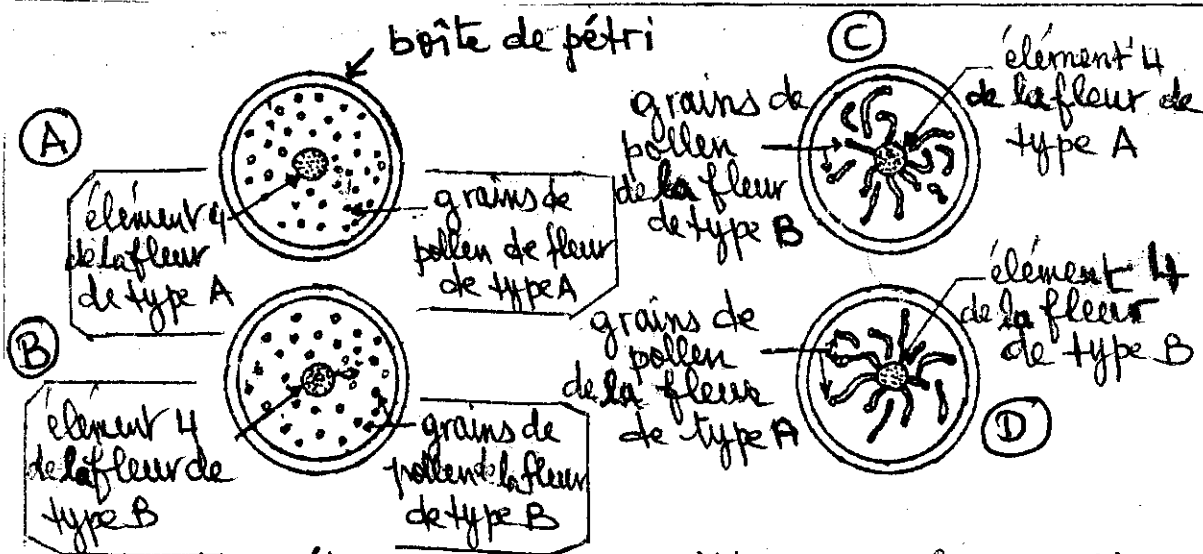 boîte de pétri
A
élément 4
de la fleur
de type A
grains de
pollen de fleur
de type A
B
élément 4
de la fleur de
type B
grains de
pollen de la fleur
de type B
C
grains de
pollen
de la fleur
de type B
élément 4
de la fleur de
type A
grains de
pollen
de la fleur
de type A
élément 4
de la fleur
de type B
D